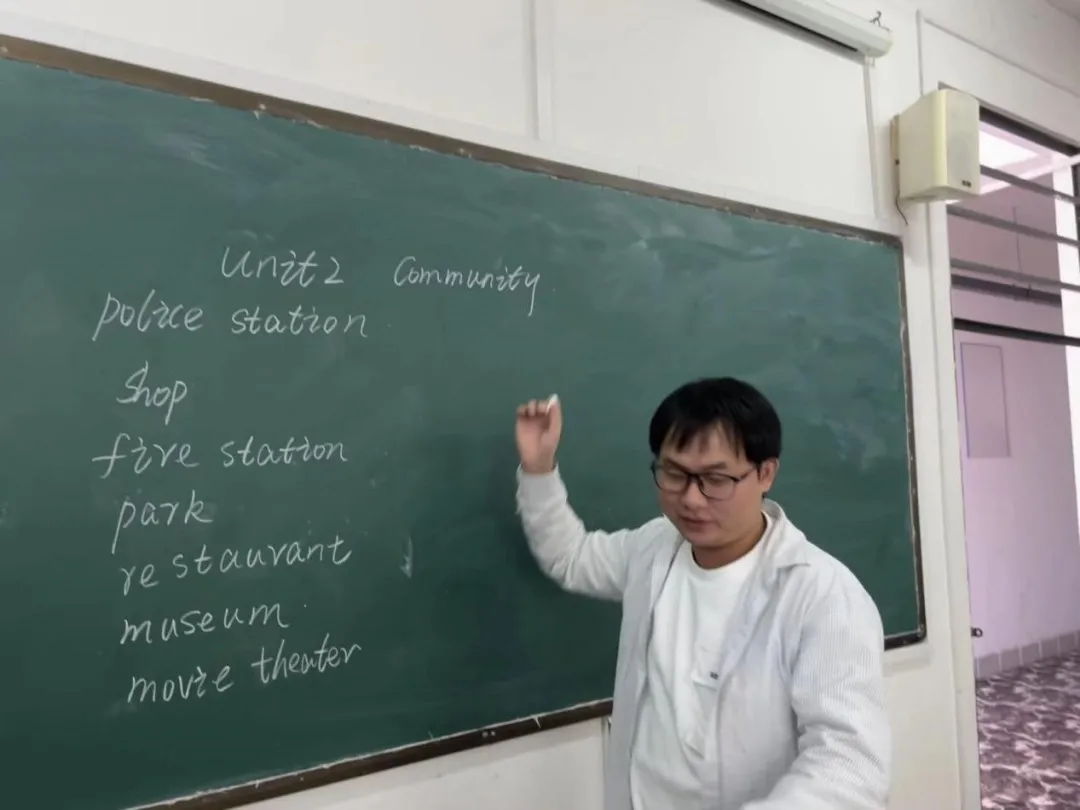 Unit 2 Community
police station
shop
fire station
park
restaurant
museum
movie theater